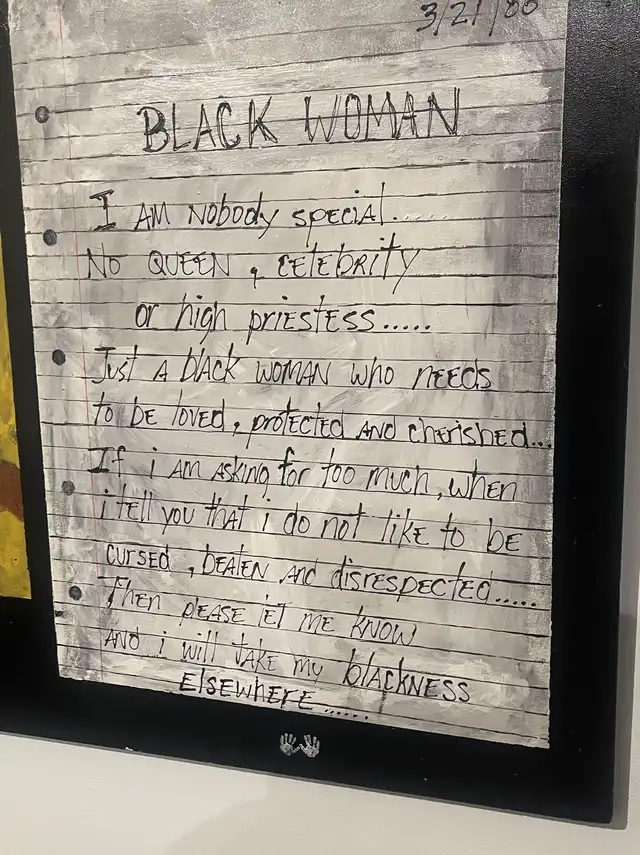 3/21/00
BLACK WOMAN
I AM NObody special......
No QUEEN, CELEbRITy
or high pRiESTESS.....
Just A black WOMAN who NEEds
To bE loved, pRoTEcTEd AND chERishEd...
If i AM ASkiNg foR Too Much, whEN
i TEll you ThAT i do NoT likE To bE
cuRsEd, bEATEN ANd disREspEcTEd.....
ThEN plEASE lET ME kNow
AND i will TAKE My blAckNESS
ElsEwhERE......